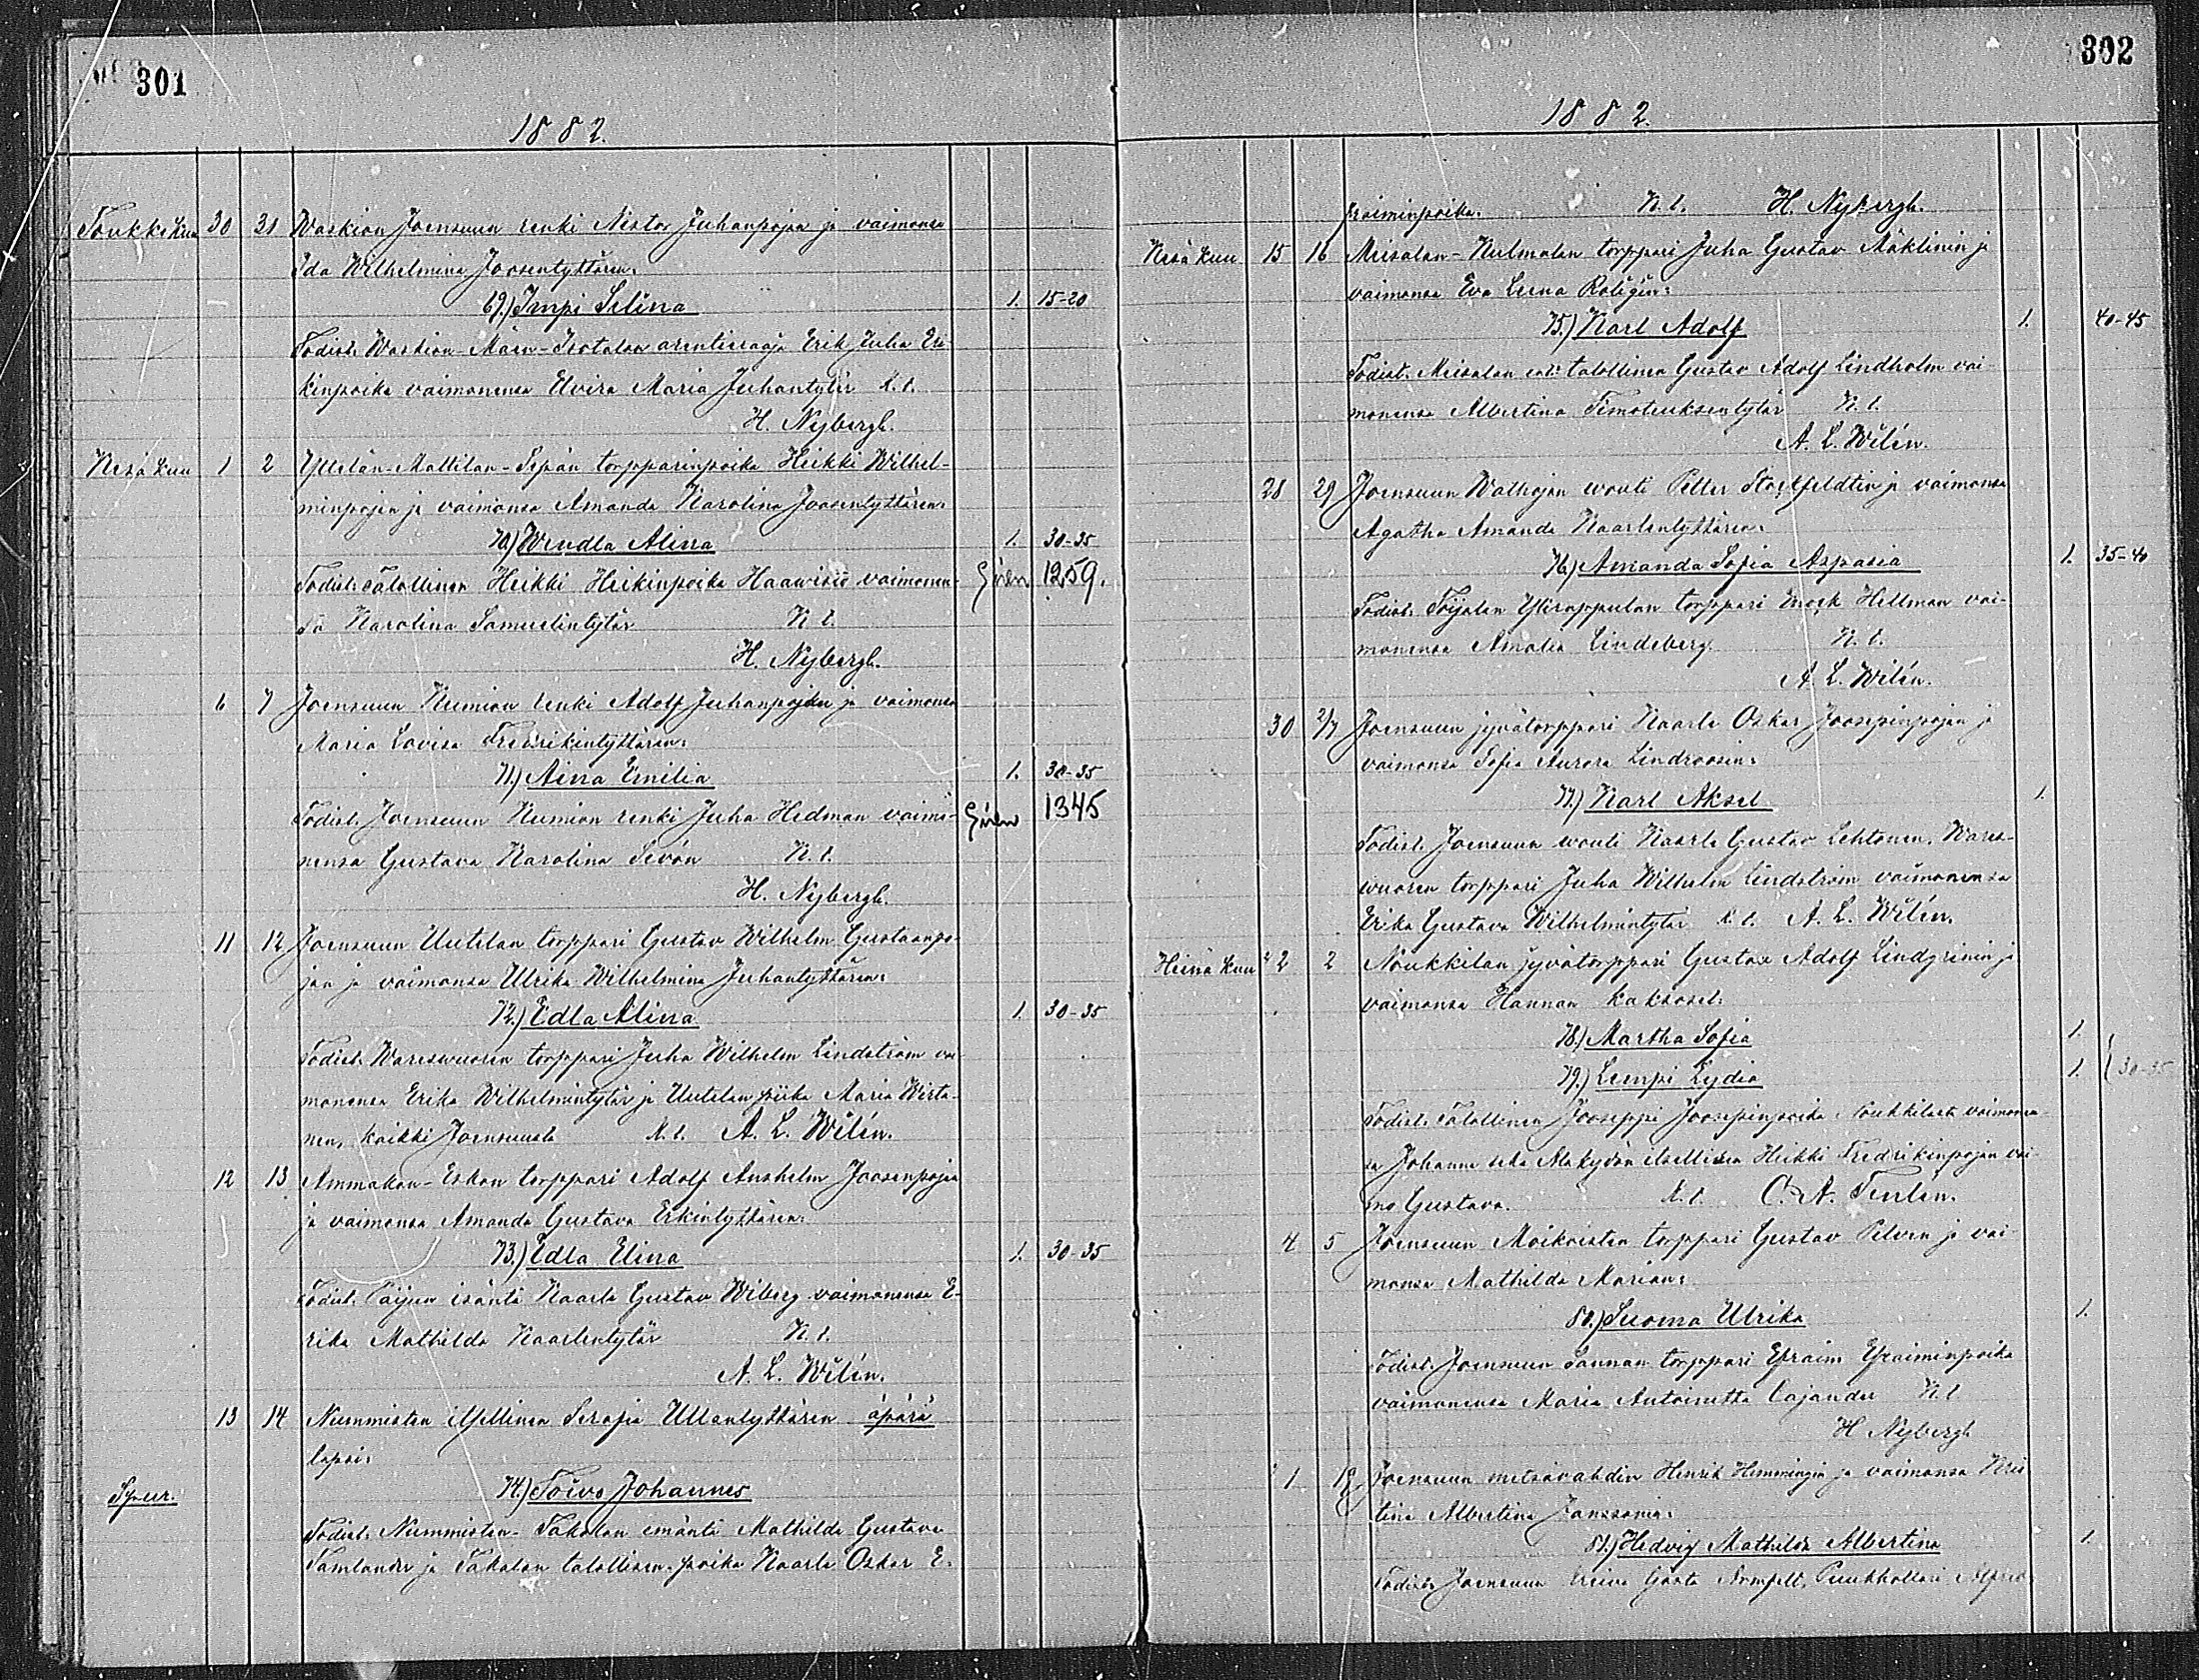 301
1882.
Toukkokuu 30 31 Waskion Joensuun renki Nestor Juhanpojan ja vaimonsa
Ida Wilhelmina Joosentyttären:
69.) Impi Selina 1. 15-20
Todist. Waskion-Mäen-Isotalon arentisaaja Erik Juha Eri-
kinpoika vaimonensa Elvira Maria Juhantytär K. t.
H. Nybergh.
Kesä kuu 1 2 Yltelän-Mattilan-Sepän torpparinpoika Heikki Wilhel-
minpojan ja vaimonsa Amanda Karolina Joosentyttären:
70.) Wendla Alina 1. 30-35
Todist. talollinen Heikki Heikinpoika vaimonen- 1259.
sa Karolina Samuelintytär K. t.
H. Nybergh.
6 7 Joensuun Kumion renki Adolf Juhanpojan ja vaimonsa
Maria Lovisa Fredrikintyttären:
71.) Aina Emilia 1. 30-35
Todist. Joensuun Kumion renki Juha Hedman vaimo- 1345
nensa Gustava Karolina Sevón K. t.
H. Nybergh.
11 12 Joensuun Uutelan torppari Gustav Wilhelm Gustaanpo-
jan ja vaimonsa Ulrika Wilhelmina Juhantyttären:
72.) Edla Alina 1. 30-35
Todist. Wareswuoren torppari Juha Wilhelm Lindström vai
monensa Erika Wilhelmintytär ja Uutelan piika Maria Wirta-
nen, kaikki Joensuusta K. t. A. L. Wilén.
12 13 Ammakon-Eskon torppari Adolf Anshelm Joosenpojan
ja vaimonsa Amanda Gustava Erkintyttären:
73.) Edla Elina 1. 30-35
Todist. isäntä Kaarle Gustav Wiberg vaimonensa E-
rika Mathilda Kaarlentytär K. t.
A. L. Wilén.
13 14 Nummisten itsellinen Serafia Ullantyttären äpärä
lapsi:
Spur. 74.) Toivo Johannes
Todist. Nummisten-Takalan emäntä Mathilda Gustava
Tamlander ja Takalan talollisen poika Kaarle Oskar E.
302
1882.
fraiminpoika. K. t. H. Nybergh.
Kesä kuu 15 16 Meisalan-Kulmalan torppari Juha Gustav Mäklinin ja
vaimonsa Eva Leena
75.) Karl Adolf 1. 40-45
Todist. Meisalan talollinen Gustav Adolf Lindholm vai-
monensa Albertina Timoteuksentytär K. t.
A. L. Wilén.
28 29 Joensuun Wathojan wouti Petter ja vaimonsa
Agatha Amanda Kaarlentyttären:
76.) Amanda Sofia Aspasia 1. 35-40
Todist. Toijalan Ylirappulan torppari Hellman vai-
monensa Amalia Lindeberg. K. t.
A. L. Wilén.
30 2/7 Joensuun jyvätorppari Kaarle Oskar Joosepinpojan ja
vaimonsa Sofia Aurora Lindroosin:
77.) Karl Aksel 1.
Todist. Joensuun wouti Kaarle Gustav Lehtonen. Wares-
wuoren torppari Juha Wilhelm Lindström vaimonensa
Erika Gustava Wilhelmintytär K. t. A. L. Wilén.
Heinä kuu 2 2 Noukkilan jyvätorppari Gustav Adolf Lindgrenin ja
vaimonsa Hannan kaksoset:
78.) Martha Sofia 1.
79.) Lempi Lydia 1. 30-35
Todist. Talollinen Jooseppi Joosepinpoika Noukkilasta vaimonen-
sa Johanna sekä Alakydön itsellisen Heikki Fredrikinpojan vai-
mo Gustava. K. t. C. A. Terlén.
4 5 Joensuun Moikoisten torppari Gustav Pelvin ja vai-
monsa Mathilda Marian:
80.) Suoma Ulrika 1.
Todist. Joensuun Sannan torppari Efraim Efraiminpoika
vaimonensa Maria Antoinetta Cajander K. t
H Nybergh
1 Joensuun metsävahdin Henrik Hemmingin ja vaimonsa Kris
tina Albertina Janssonin:
81.) Hedvig Mathilda Albertina 1.
Todist. Joensuun Gösta Armfelt,